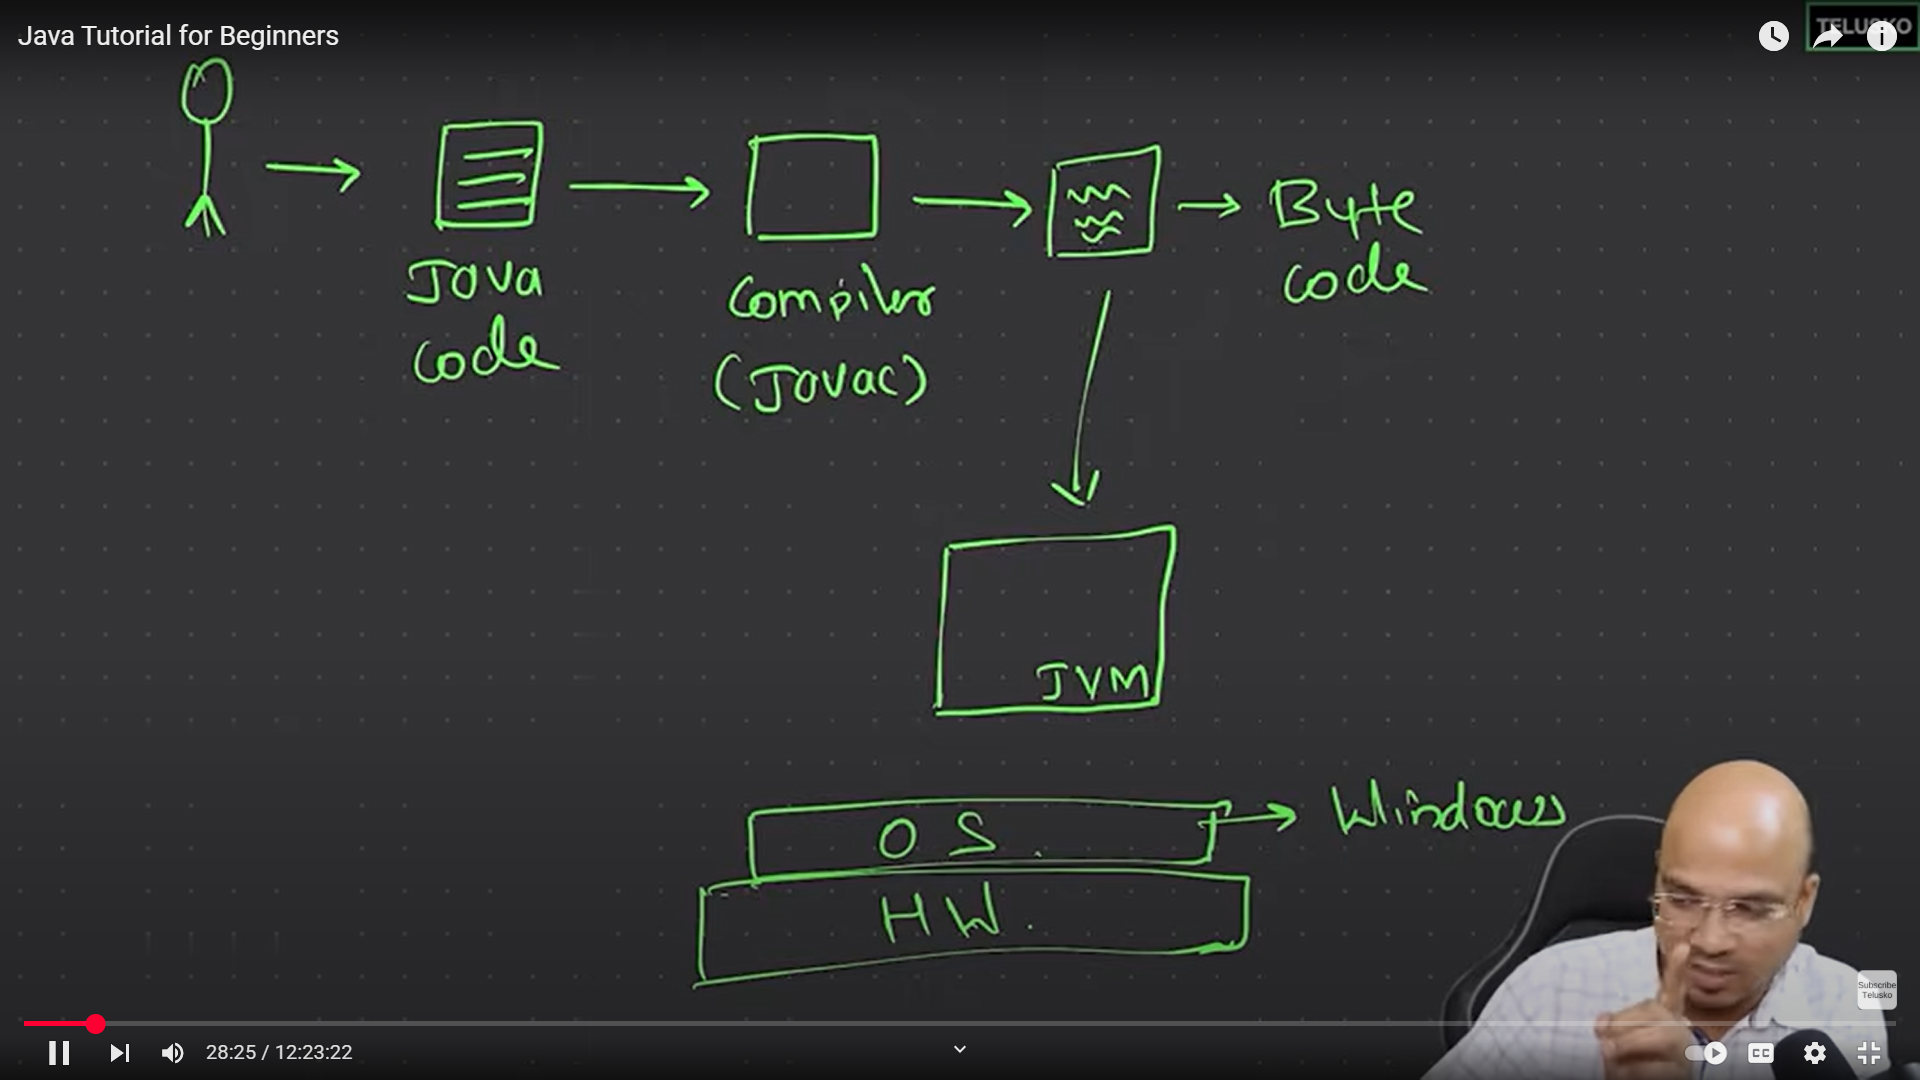 Java Tutorial for Beginners
TELUSKO
Java
code
Compiler
(Javac)
Byte
code
JVM
OS.
Windows
HW.
Subscribe
Telusko
28:25 / 12:23:22
CC